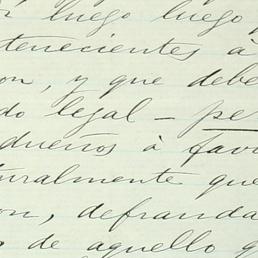 luego luego
tenecientes à
on, y que debe
do legal - pe
dueños à favo
uralmente que
on, defrauda
de aquello q